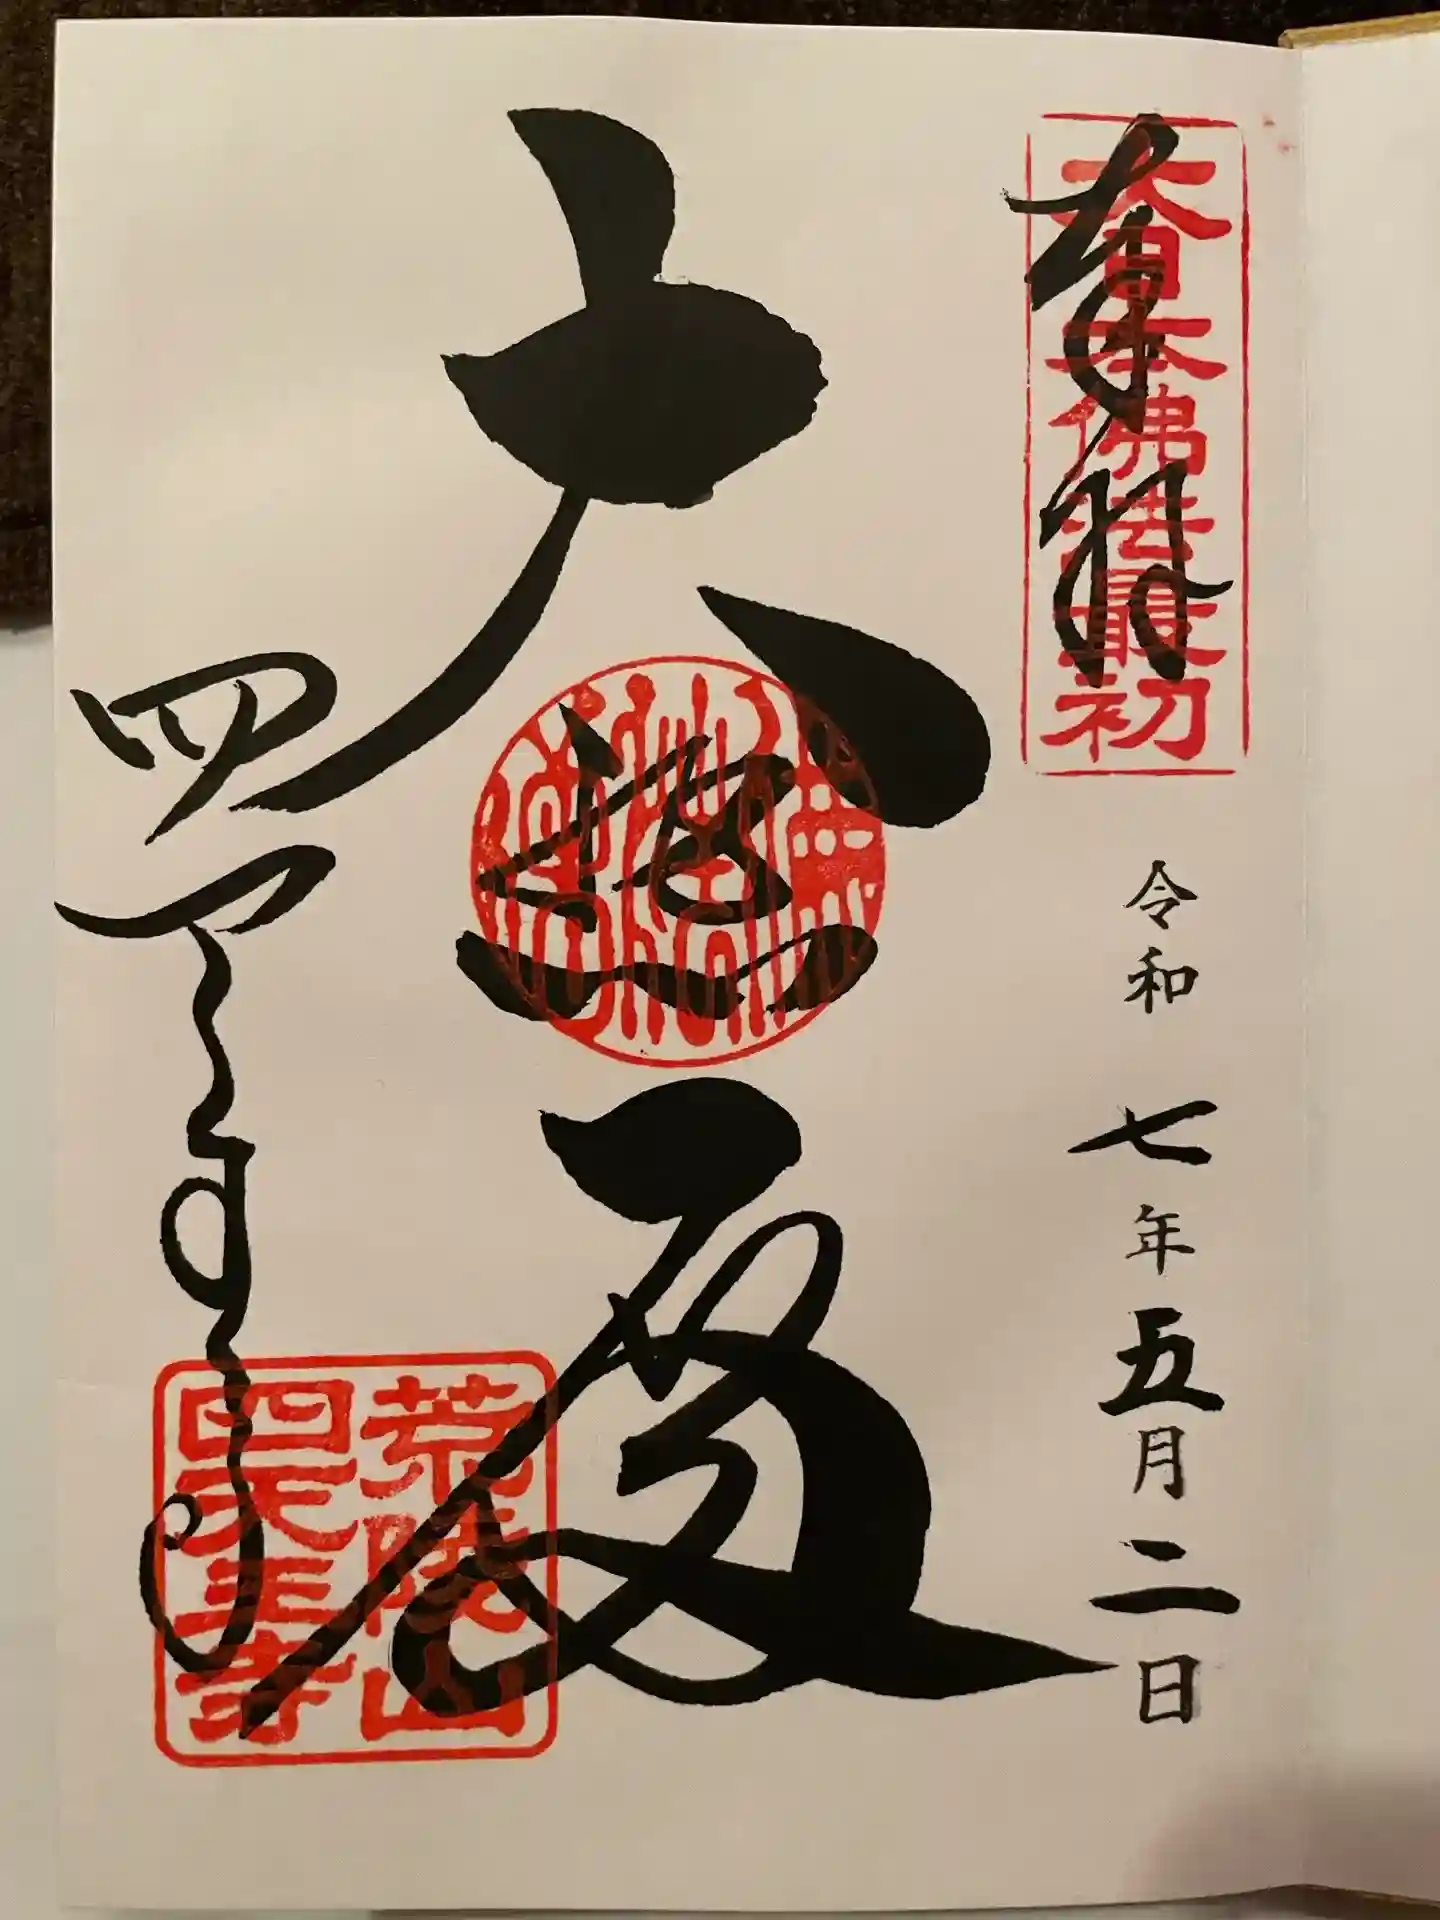 奉拝
大日本佛法最初
令和 七年五月二日
大悲殿
四天王寺
荒陵山
四天王寺